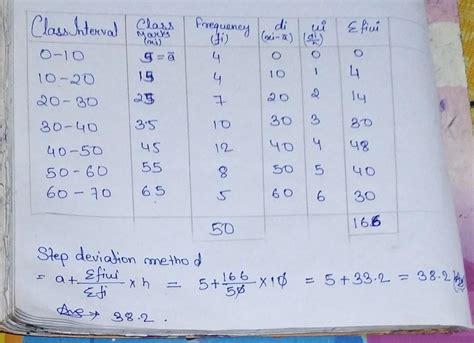 Class Interval Class Marks (xi) Frequency (fi) di (xi-a̅) ui (di/h) Σfiui
0-10 5=a̅ 4 0 0 0
10-20 15 4 10 1 4
20-30 25 7 20 2 14
30-40 35 10 30 3 30
40-50 45 12 40 4 48
50-60 55 8 50 5 40
60-70 65 5 60 6 30
50 166
Step deviation method
= a+ Σfiui/Σfi ×h = 5+ 166/50 ×10 = 5+33.2 = 38.2
Ans → 38.2.